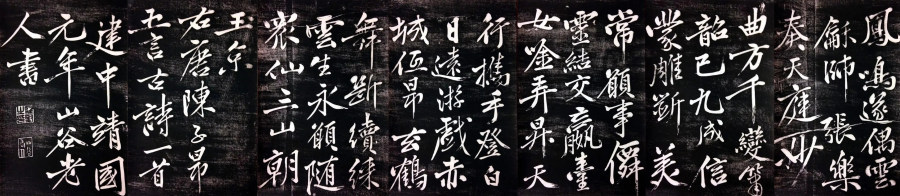 鳳鳴遂偶雲
龢師張樂
奏天庭妙
曲方千變簫
韶已九成信
蒙雕斲美
常願事僊
靈結交嬴臺
女唫弄昇天
行攜手登白
日遠游戲赤
城低昂玄鶴
舞斷續綵
雲生永願隨
衆仙三山朝
玉京
右唐陳子昂
五言古詩一首
建中靖國
元年山谷老
人書